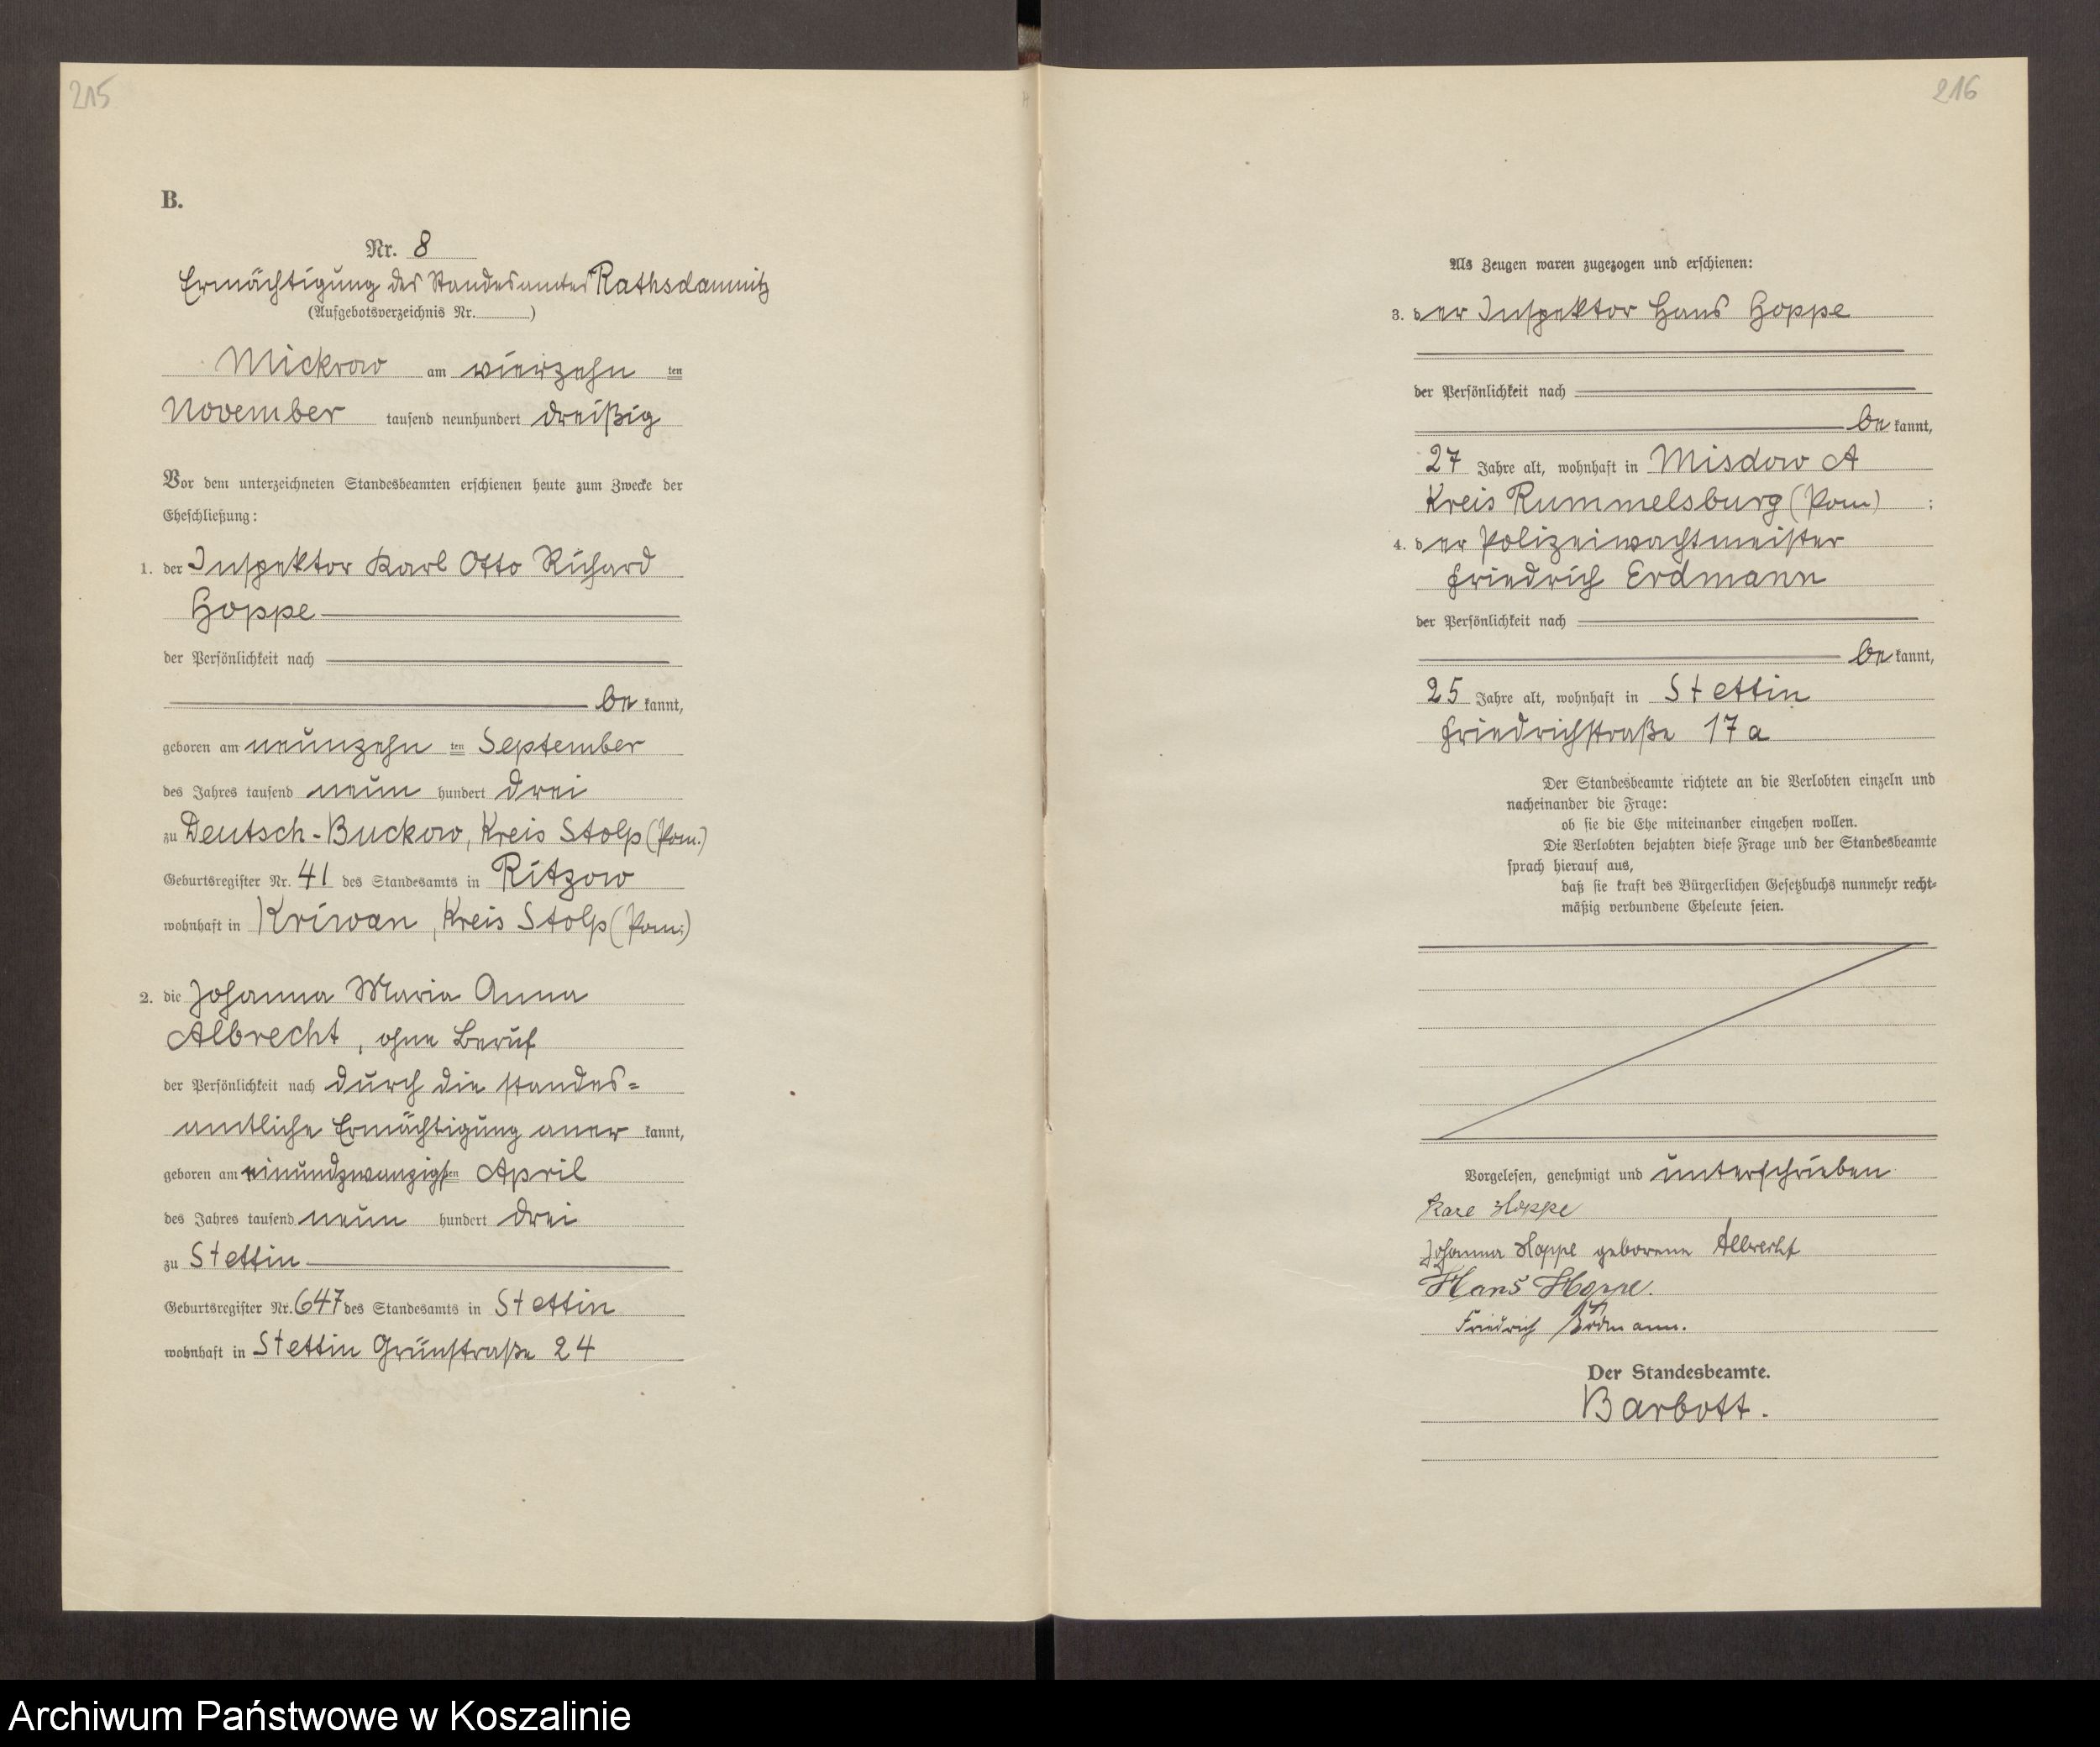 215
B.
Nr. 8
Ermächtigung des Standesamtes Rathsdamnitz
(Aufgebotsverzeichnis Nr. )
Mickrow am vierzehn ten
November tausend neunhundert dreißig
Vor dem unterzeichneten Standesbeamten erschienen heute zum Zwecke der
Eheschließung:
1. der Inspektor Karl Otto Richard
Hoppe
der Persönlichkeit nach
be kannt,
geboren am neunzehn ten September
des Jahres tausend neun hundert drei
zu Deutsch-Buckow, Kreis Stolp (Pom.)
Geburtsregister Nr. 41 des Standesamts in Ritzow
wohnhaft in Kriwan, Kreis Stolp (Pom.)
2. die Johanna Maria Anna
Albrecht, ohne Beruf
der Persönlichkeit nach durch die standes=
amtliche Ermächtigung aner kannt,
geboren am einundzwanzigsten April
des Jahres tausend neun hundert drei
zu Stettin
Geburtsregister Nr. 647 des Standesamts in Stettin
wohnhaft in Stettin Grünstraße 24
216
Als Zeugen waren zugezogen und erschienen:
3. der Inspektor Hans Hoppe
der Persönlichkeit nach
be kannt,
27 Jahre alt, wohnhaft in Misdow A
Kreis Rummelsburg (Pom) :
4. der Polizeiwachtmeister
Friedrich Erdmann
der Persönlichkeit nach
be kannt,
25 Jahre alt, wohnhaft in Stettin
Friedrichstraße 17a
Der Standesbeamte richtete an die Verlobten einzeln und
nacheinander die Frage:
ob sie die Ehe miteinander eingehen wollen.
Die Verlobten bejahten diese Frage und der Standesbeamte
sprach hierauf aus,
daß sie kraft des Bürgerlichen Gesetzbuchs nunmehr recht=
mäßig verbundene Eheleute seien.
Vorgelesen, genehmigt und unterschrieben
Karl Hoppe
Johanna Hoppe geborene Albrecht
Hans Hoppe.
Friedrich Erdmann.
Der Standesbeamte.
Barbott.
Archiwum Państwowe w Koszalinie